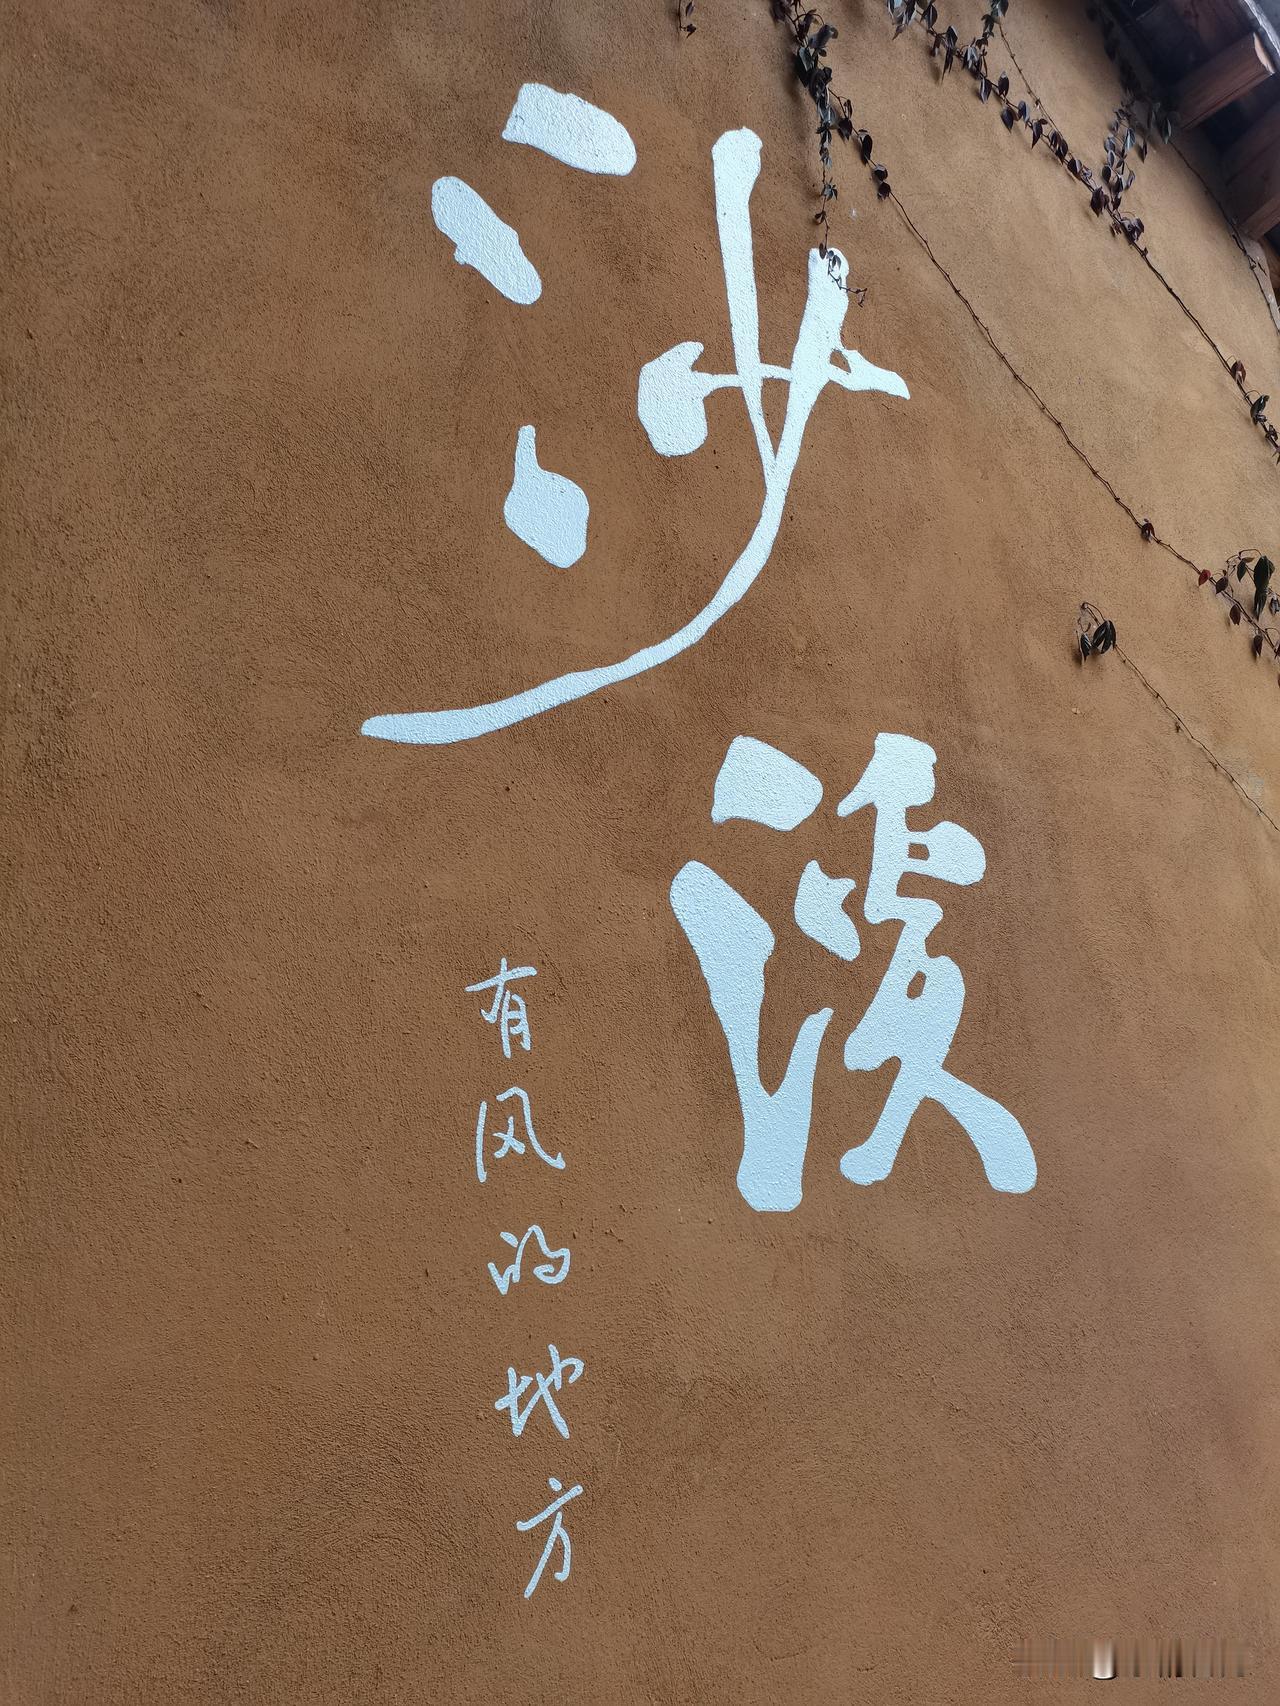 沙溪
有风的地方